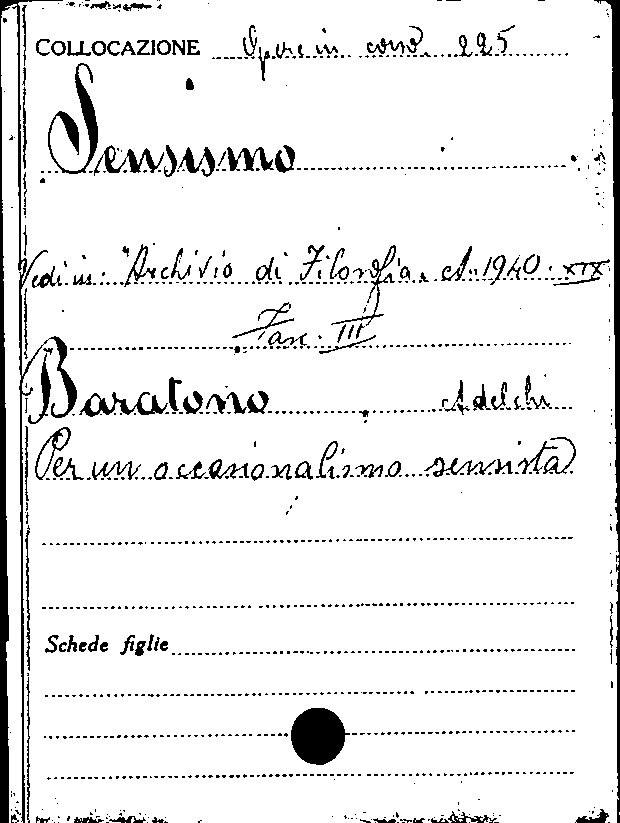 COLLOCAZIONE Opere in corso. 225
Sensismo
Vedi in: "Archivio di Filosofia. A. 1940. XIX
Fasc. III
Baratono, Adelchi
Per un occasionalismo sensista
Schede figlie